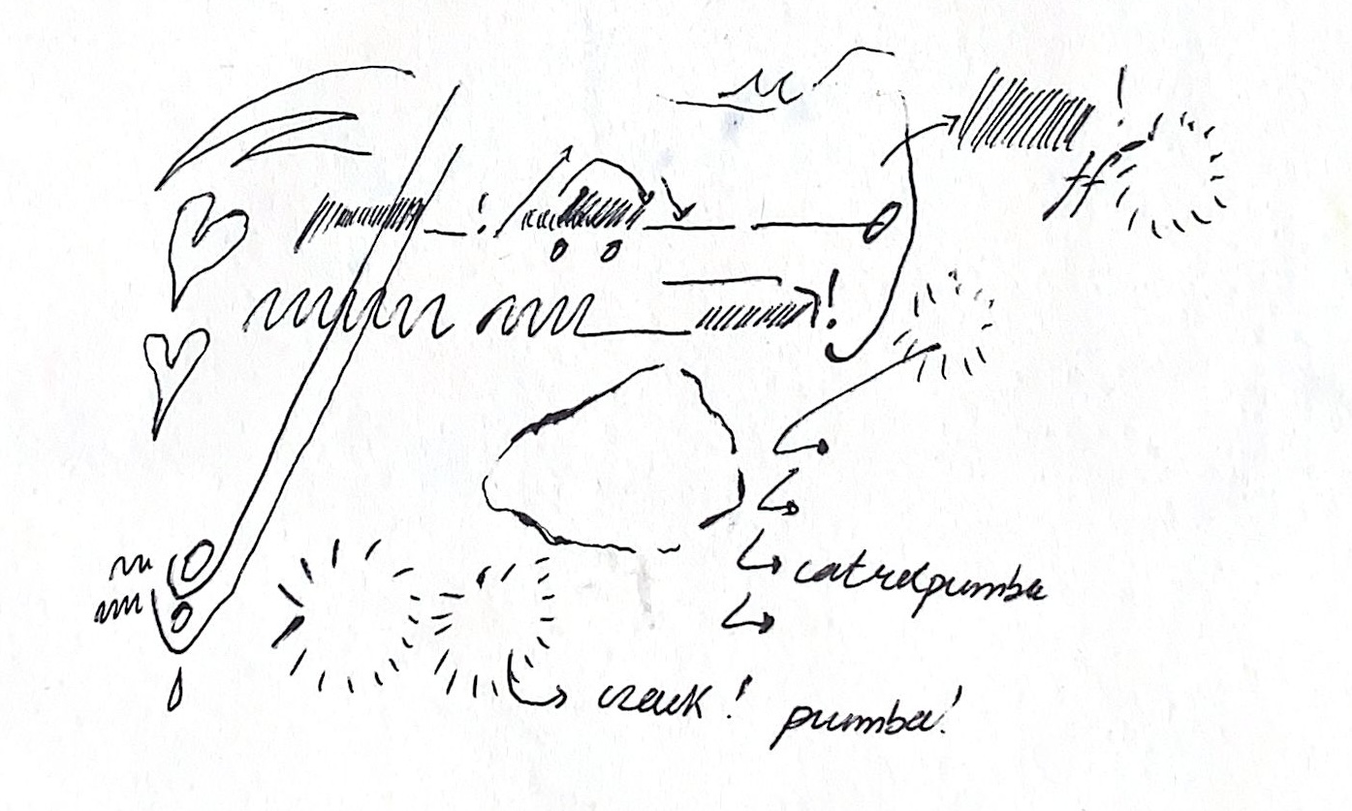 ff
catrelpumba
crack!
pumba!